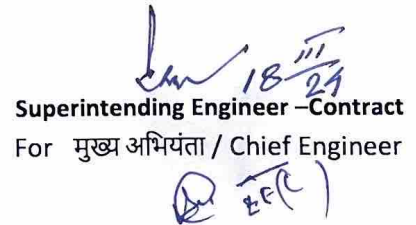 18/III/24
Superintending Engineer –Contract
For मुख्य अभियंता / Chief Engineer